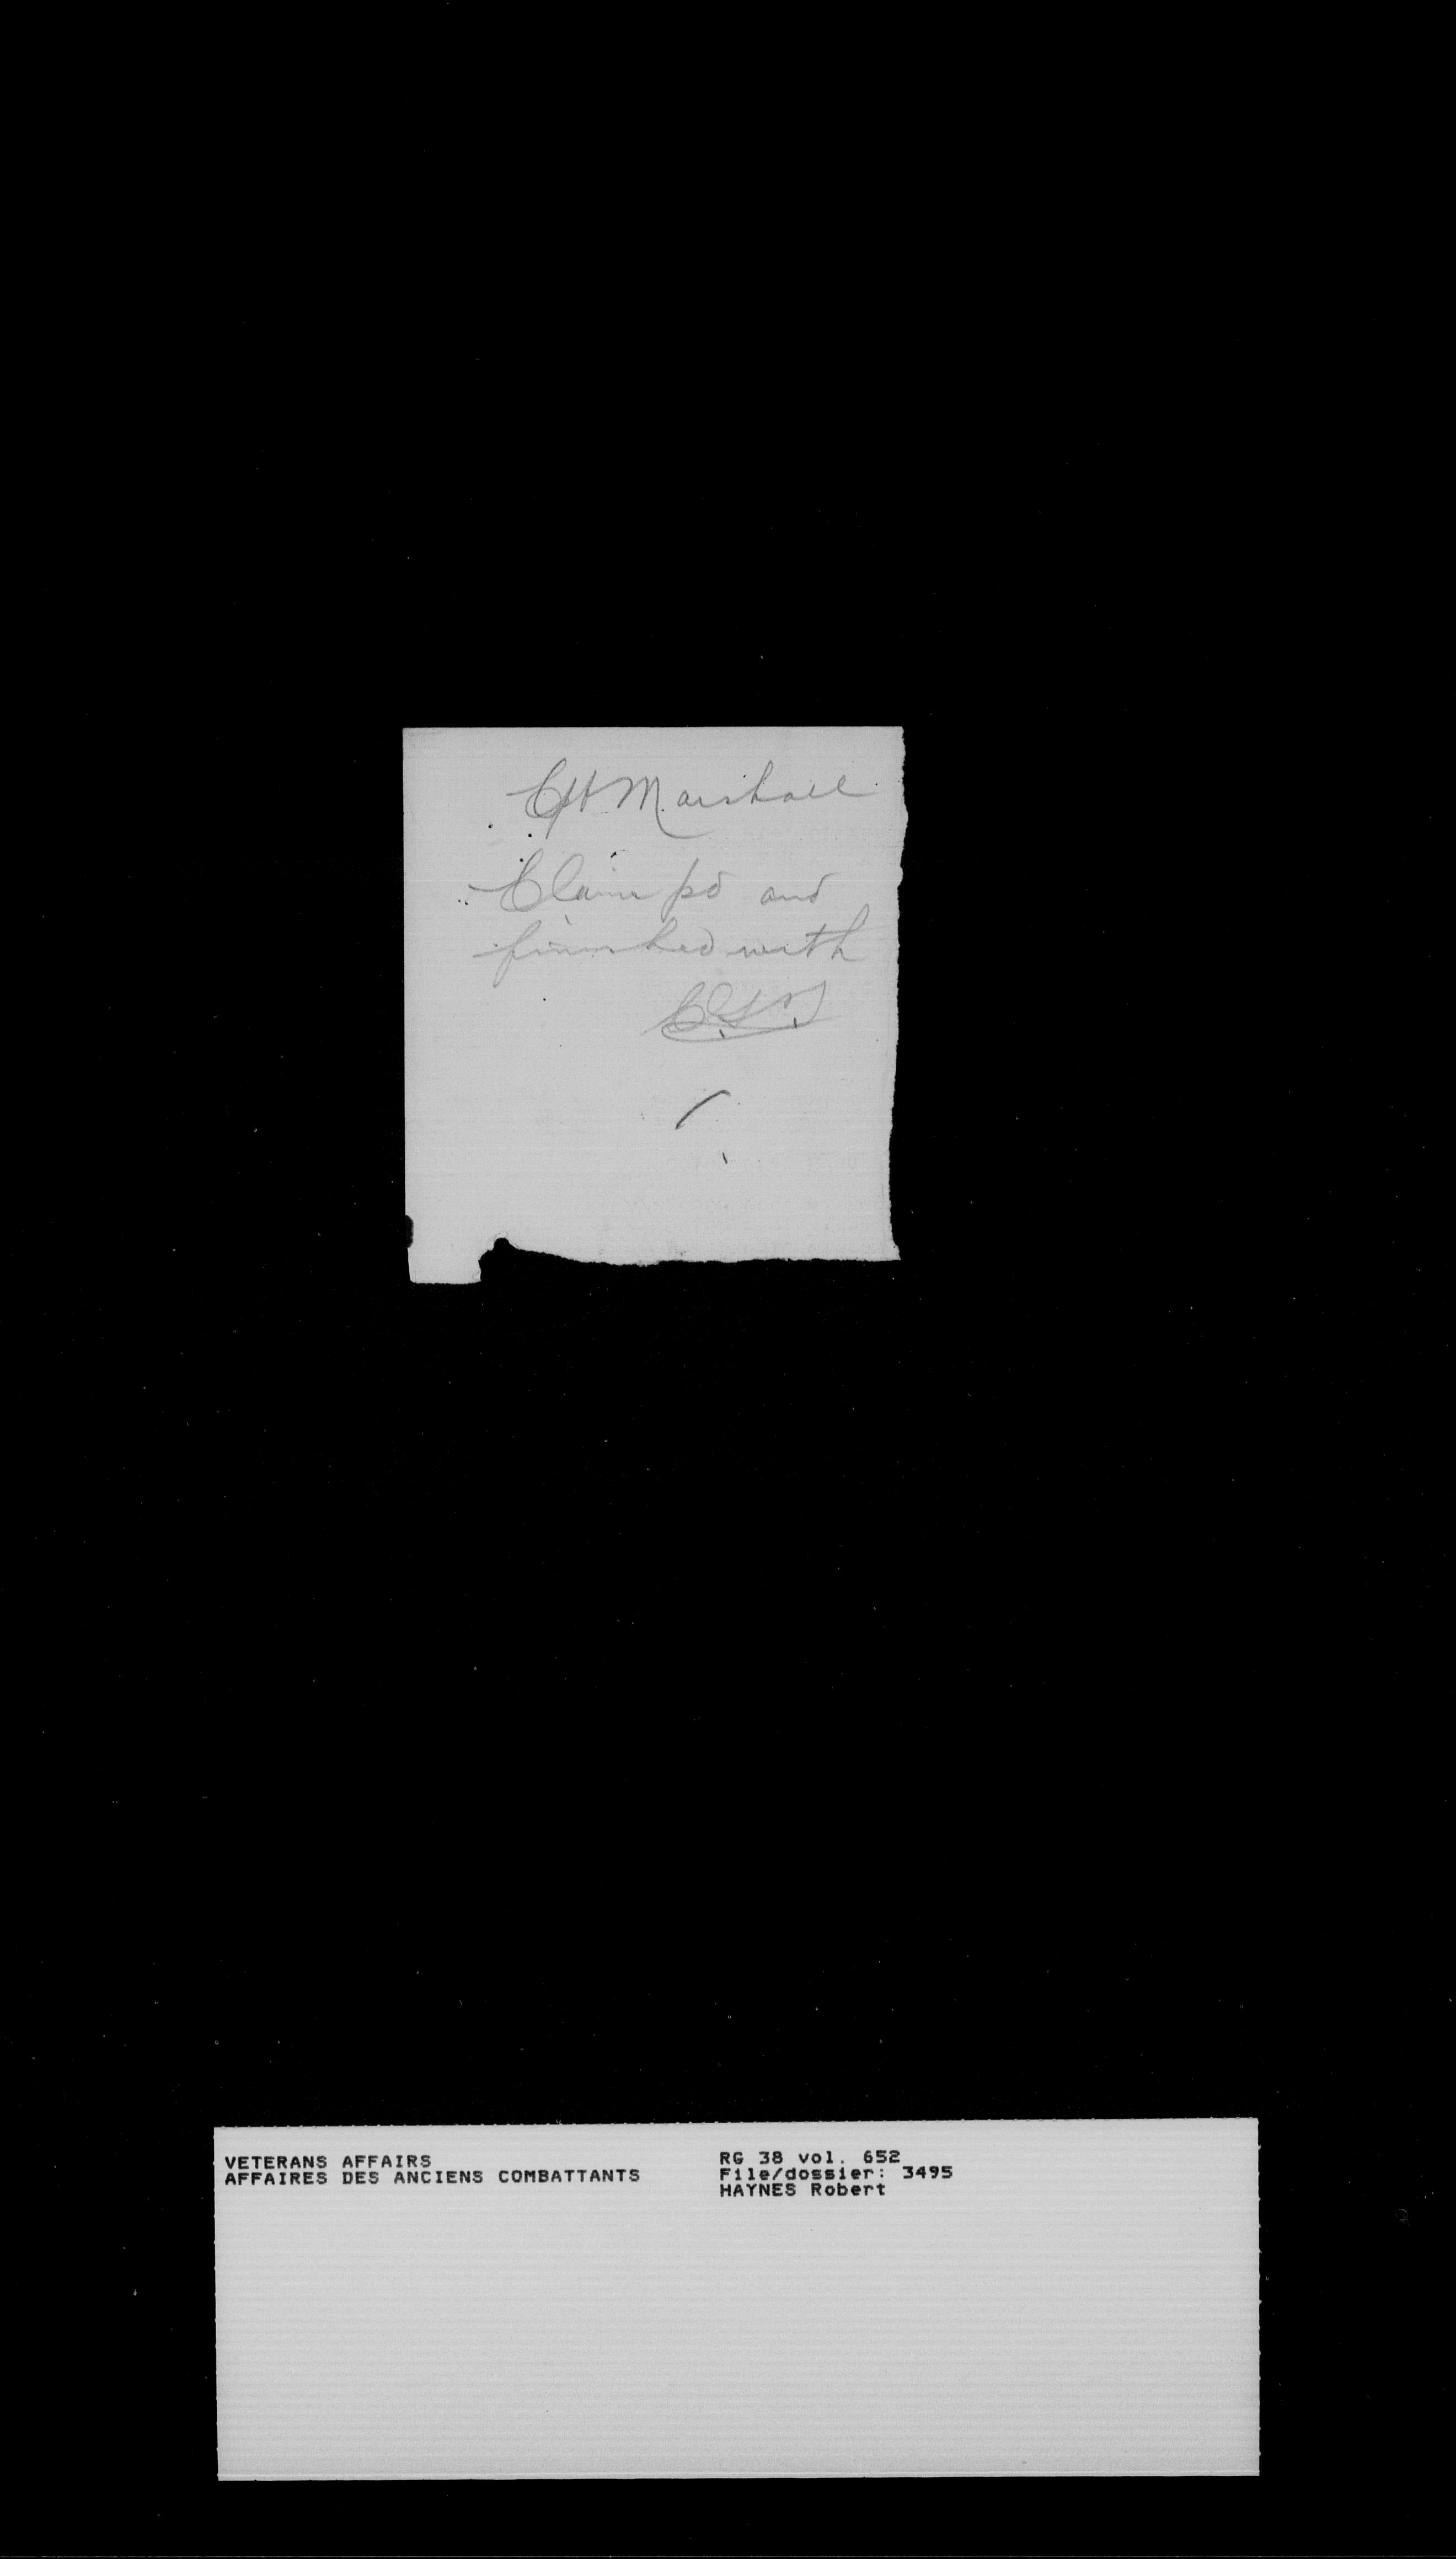 CH Marshall
Claim pd and
finished with
VETERANS AFFAIRS
AFFAIRES DES ANCIENS COMBATTANTS
RG 38 vol. 652
File/dossier: 3495
HAYNES Robert